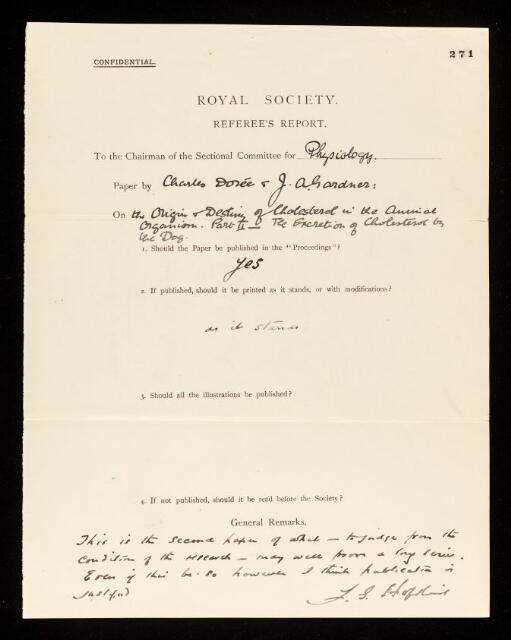 271
CONFIDENTIAL.
ROYAL SOCIETY.
REFEREE'S REPORT.
To the Chairman of the Sectional Committee for Physiology.
Paper by Charles Dorée & J. A. Gardner:
On the Origin & Destiny of Cholesterol in the Animal
Organism. Part II — The Excretion of Cholesterol by
the Dog.
1. Should the Paper be published in the "Proceedings"?
Yes
2. If published, should it be printed as it stands, or with modifications?
as it stands
3. Should all the illustrations be published?
4. If not published, should it be read before the Society?
General Remarks.
This is the second paper of what — to judge from the
condition of the research — may well prove a long series.
Even if this be so however I think publication is
justified
F. G. Hopkins